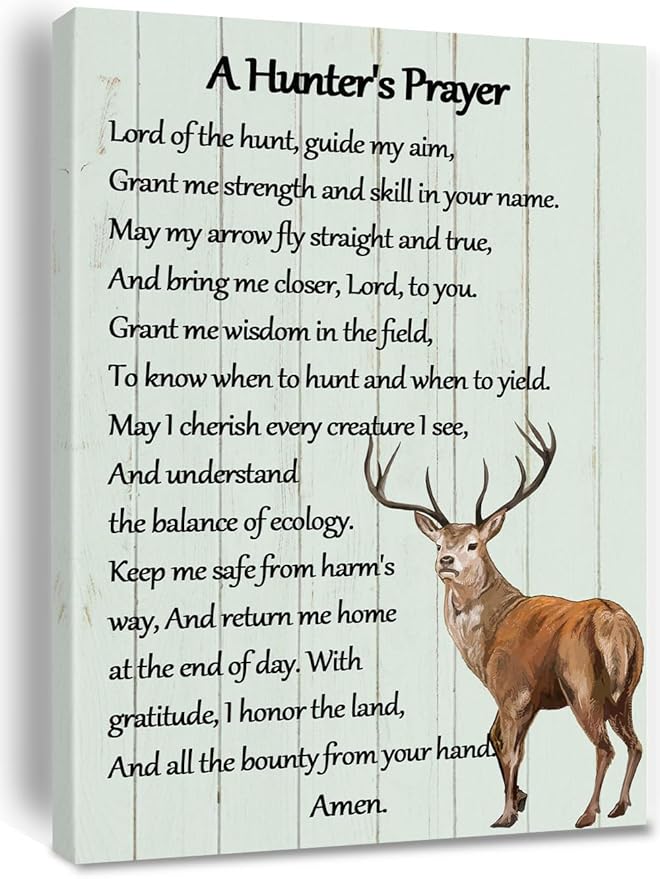 A Hunter's Prayer
Lord of the hunt, guide my aim,
Grant me strength and skill in your name.
May my arrow fly straight and true,
And bring me closer, Lord, to you.
Grant me wisdom in the field,
To know when to hunt and when to yield.
May I cherish every creature I see,
And understand
the balance of ecology.
Keep me safe from harm's
way, And return me home
at the end of day. With
gratitude, I honor the land,
And all the bounty from your hand.
Amen.